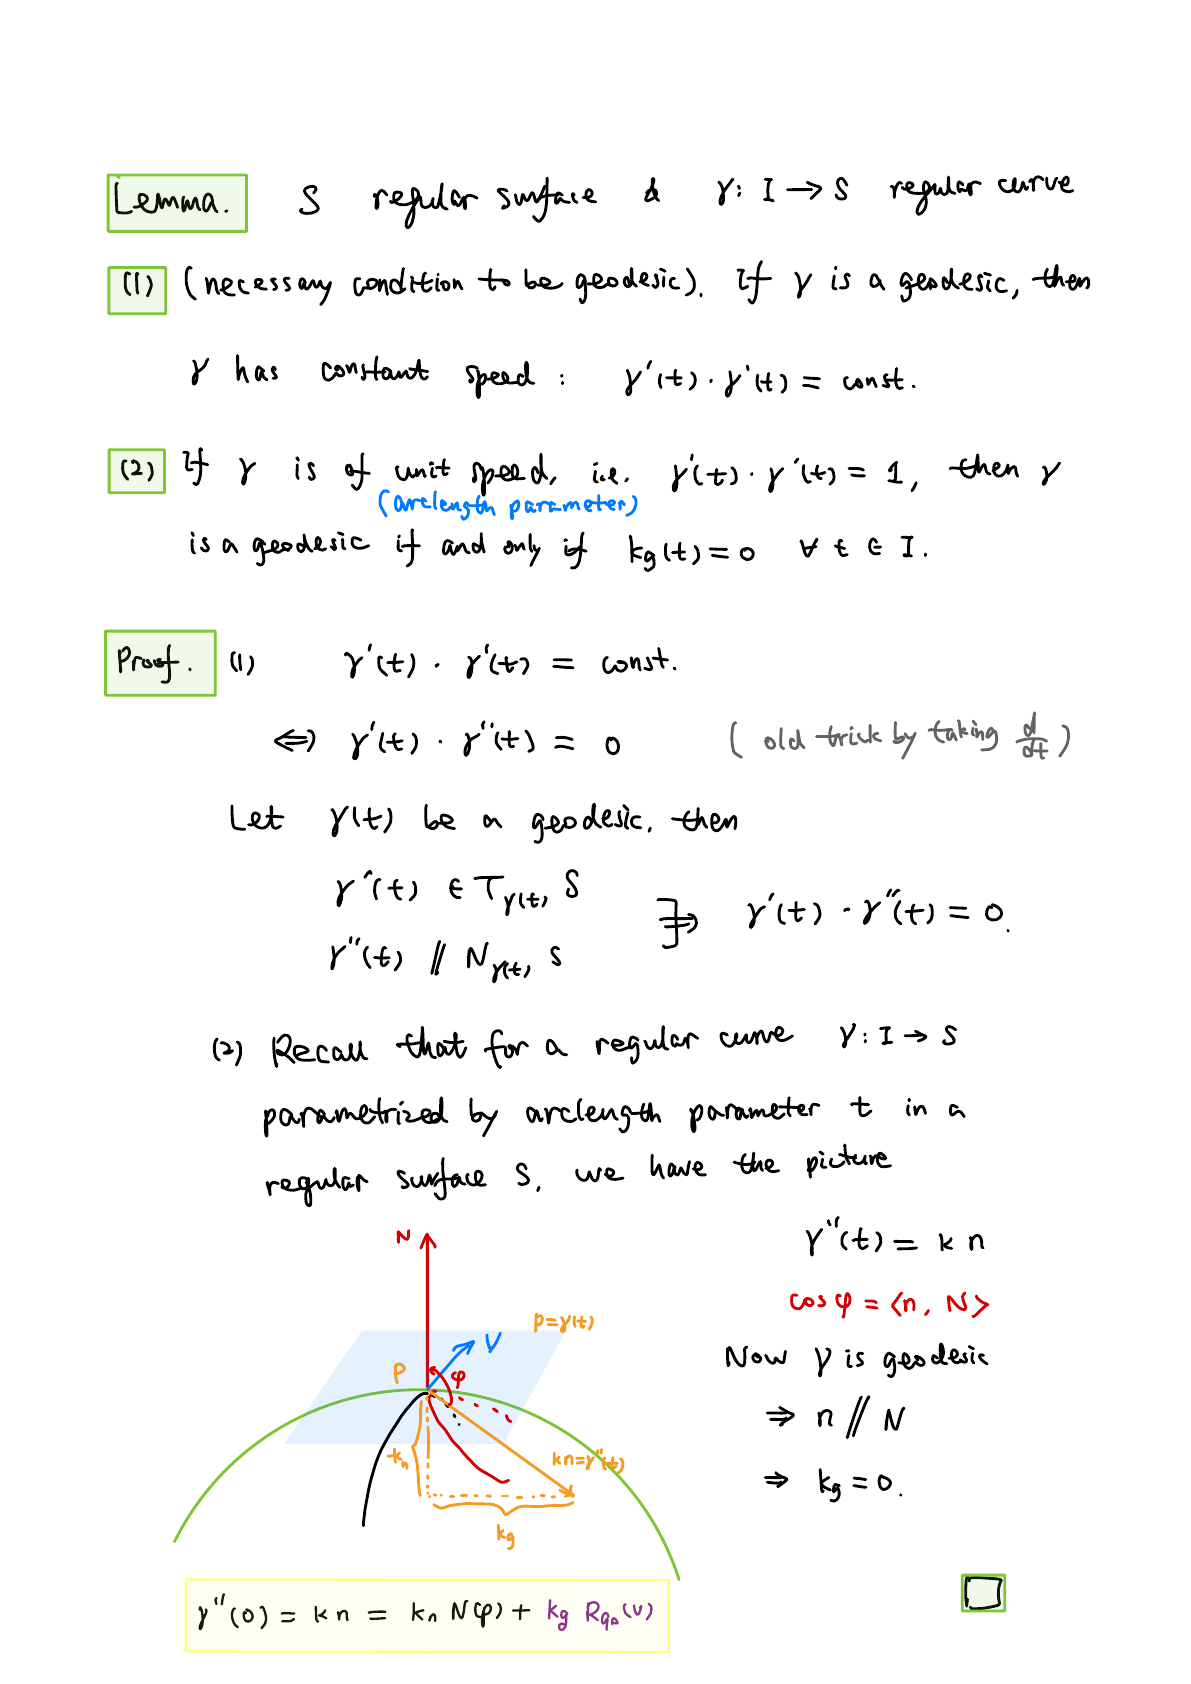 Lemma. S regular surface & γ: I → S regular curve
(1) (necessary condition to be geodesic). If γ is a geodesic, then
γ has constant speed : γ'(t) · γ'(t) = const.
(2) If γ is of unit speed, i.e. γ'(t) · γ'(t) = 1, then γ
(arclength parameter)
is a geodesic if and only if kg(t) = 0 ∀ t ∈ I.
Proof. (1) γ'(t) · γ'(t) = const.
⟺ γ'(t) · γ''(t) = 0 ( old trick by taking d/dt )
Let γ(t) be a geodesic, then
γ'(t) ∈ T_γ(t) S
γ''(t) // N_γ(t) S
⇒ γ'(t) · γ''(t) = 0.
(2) Recall that for a regular curve γ: I → S
parametrized by arclength parameter t in a
regular surface S, we have the picture
N
P=γ(t)
V
P
φ
-kn
kn=γ''(t)
kg
γ''(t) = k n
cos φ = <n, N>
Now γ is geodesic
⇒ n // N
⇒ kg = 0.
γ''(0) = k n = kn N(p) + kg R90(v)